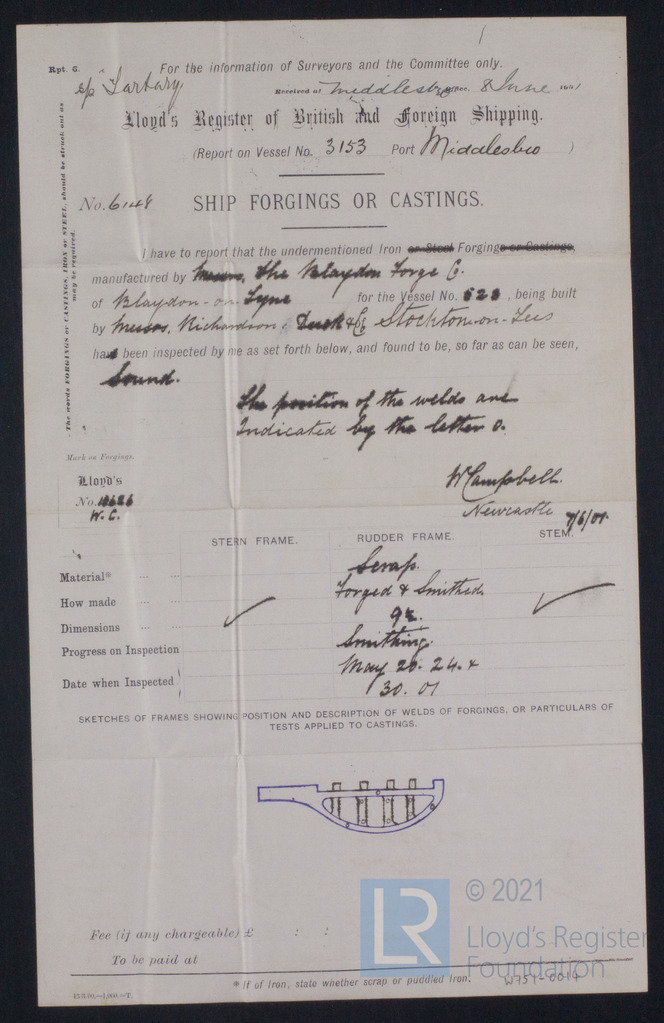 Rpt. 6.
For the information of Surveyors and the Committee only.
s/s Tartary
Received at Middlesbro 8 June 1901
Lloyd's Register of British and Foreign Shipping.
(Report on Vessel No. 3153 Port Middlesbro )
No. 6148 SHIP FORGINGS OR CASTINGS.
The words FORGINGS or CASTINGS, IRON or STEEL, should be struck out as
may be required.
I have to report that the undermentioned Iron or Steel Forgings or Castings,
manufactured by Messrs. The Blaydon Forge Co.
of Blaydon-on-Tyne for the Vessel No. 523, being built
by Messrs. Richardson, Duck & Co. Stockton-on-Tees
have been inspected by me as set forth below, and found to be, so far as can be seen,
Sound.
The position of the welds are
Indicated by the letter o.
Mark on Forgings.
Lloyd's
No.
W.C.
W Campbell.
Newcastle 7/6/01.
STERN FRAME. RUDDER FRAME. STEM.
Material* Scrap.
How made Forged & Smithed
Dimensions
Progress on Inspection Smithing.
Date when Inspected May 20. 24. &
30. 01
SKETCHES OF FRAMES SHOWING POSITION AND DESCRIPTION OF WELDS OF FORGINGS, OR PARTICULARS OF
TESTS APPLIED TO CASTINGS.
Fee (if any chargeable) £ : :
To be paid at
* If of Iron, state whether scrap or puddled Iron.
W751-0014
LR
© 2021
Lloyd's Register
Foundation